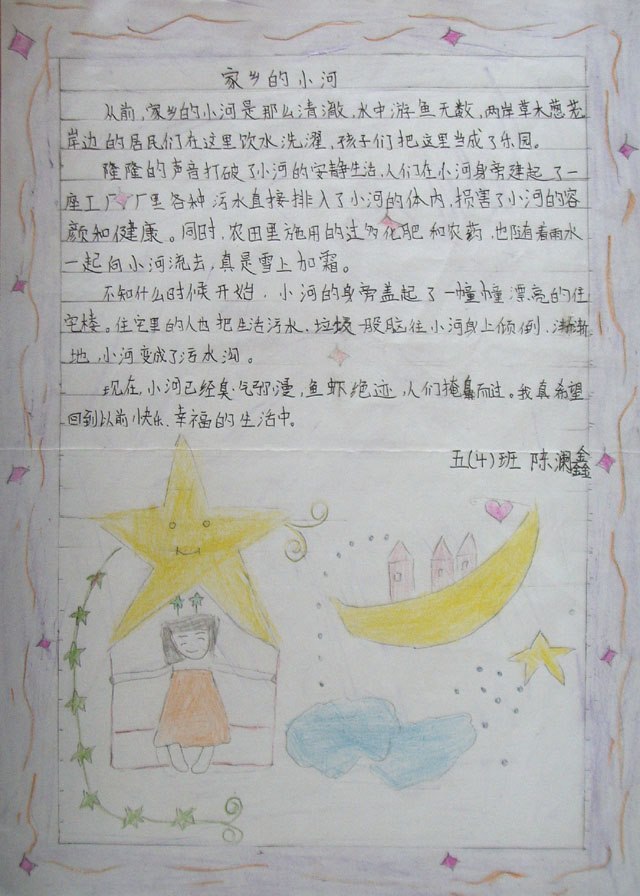 家乡的小河
从前,家乡的小河是那么清澈,水中游鱼无数,两岸草木葱茏
岸边的居民们在这里饮水洗濯,孩子们把这里当成了乐园。
隆隆的声音打破了小河的安静生活,人们在小河身旁建起了一
座工厂,厂里各种污水直接排入了小河的体内,损害了小河的容
颜和健康。同时,农田里施用的过多化肥和农药,也随着雨水
一起向小河流去,真是雪上加霜。
不知什么时候开始,小河的身旁盖起了一幢幢漂亮的住
宅楼。住宅里的人也把生活污水、垃圾一股脑往小河身上倾倒,渐渐
地,小河变成了污水沟。
现在,小河已经臭气弥漫,鱼虾绝迹,人们掩鼻而过。我真希望
回到以前快乐、幸福的生活中。
五(4)班 陈澜鑫